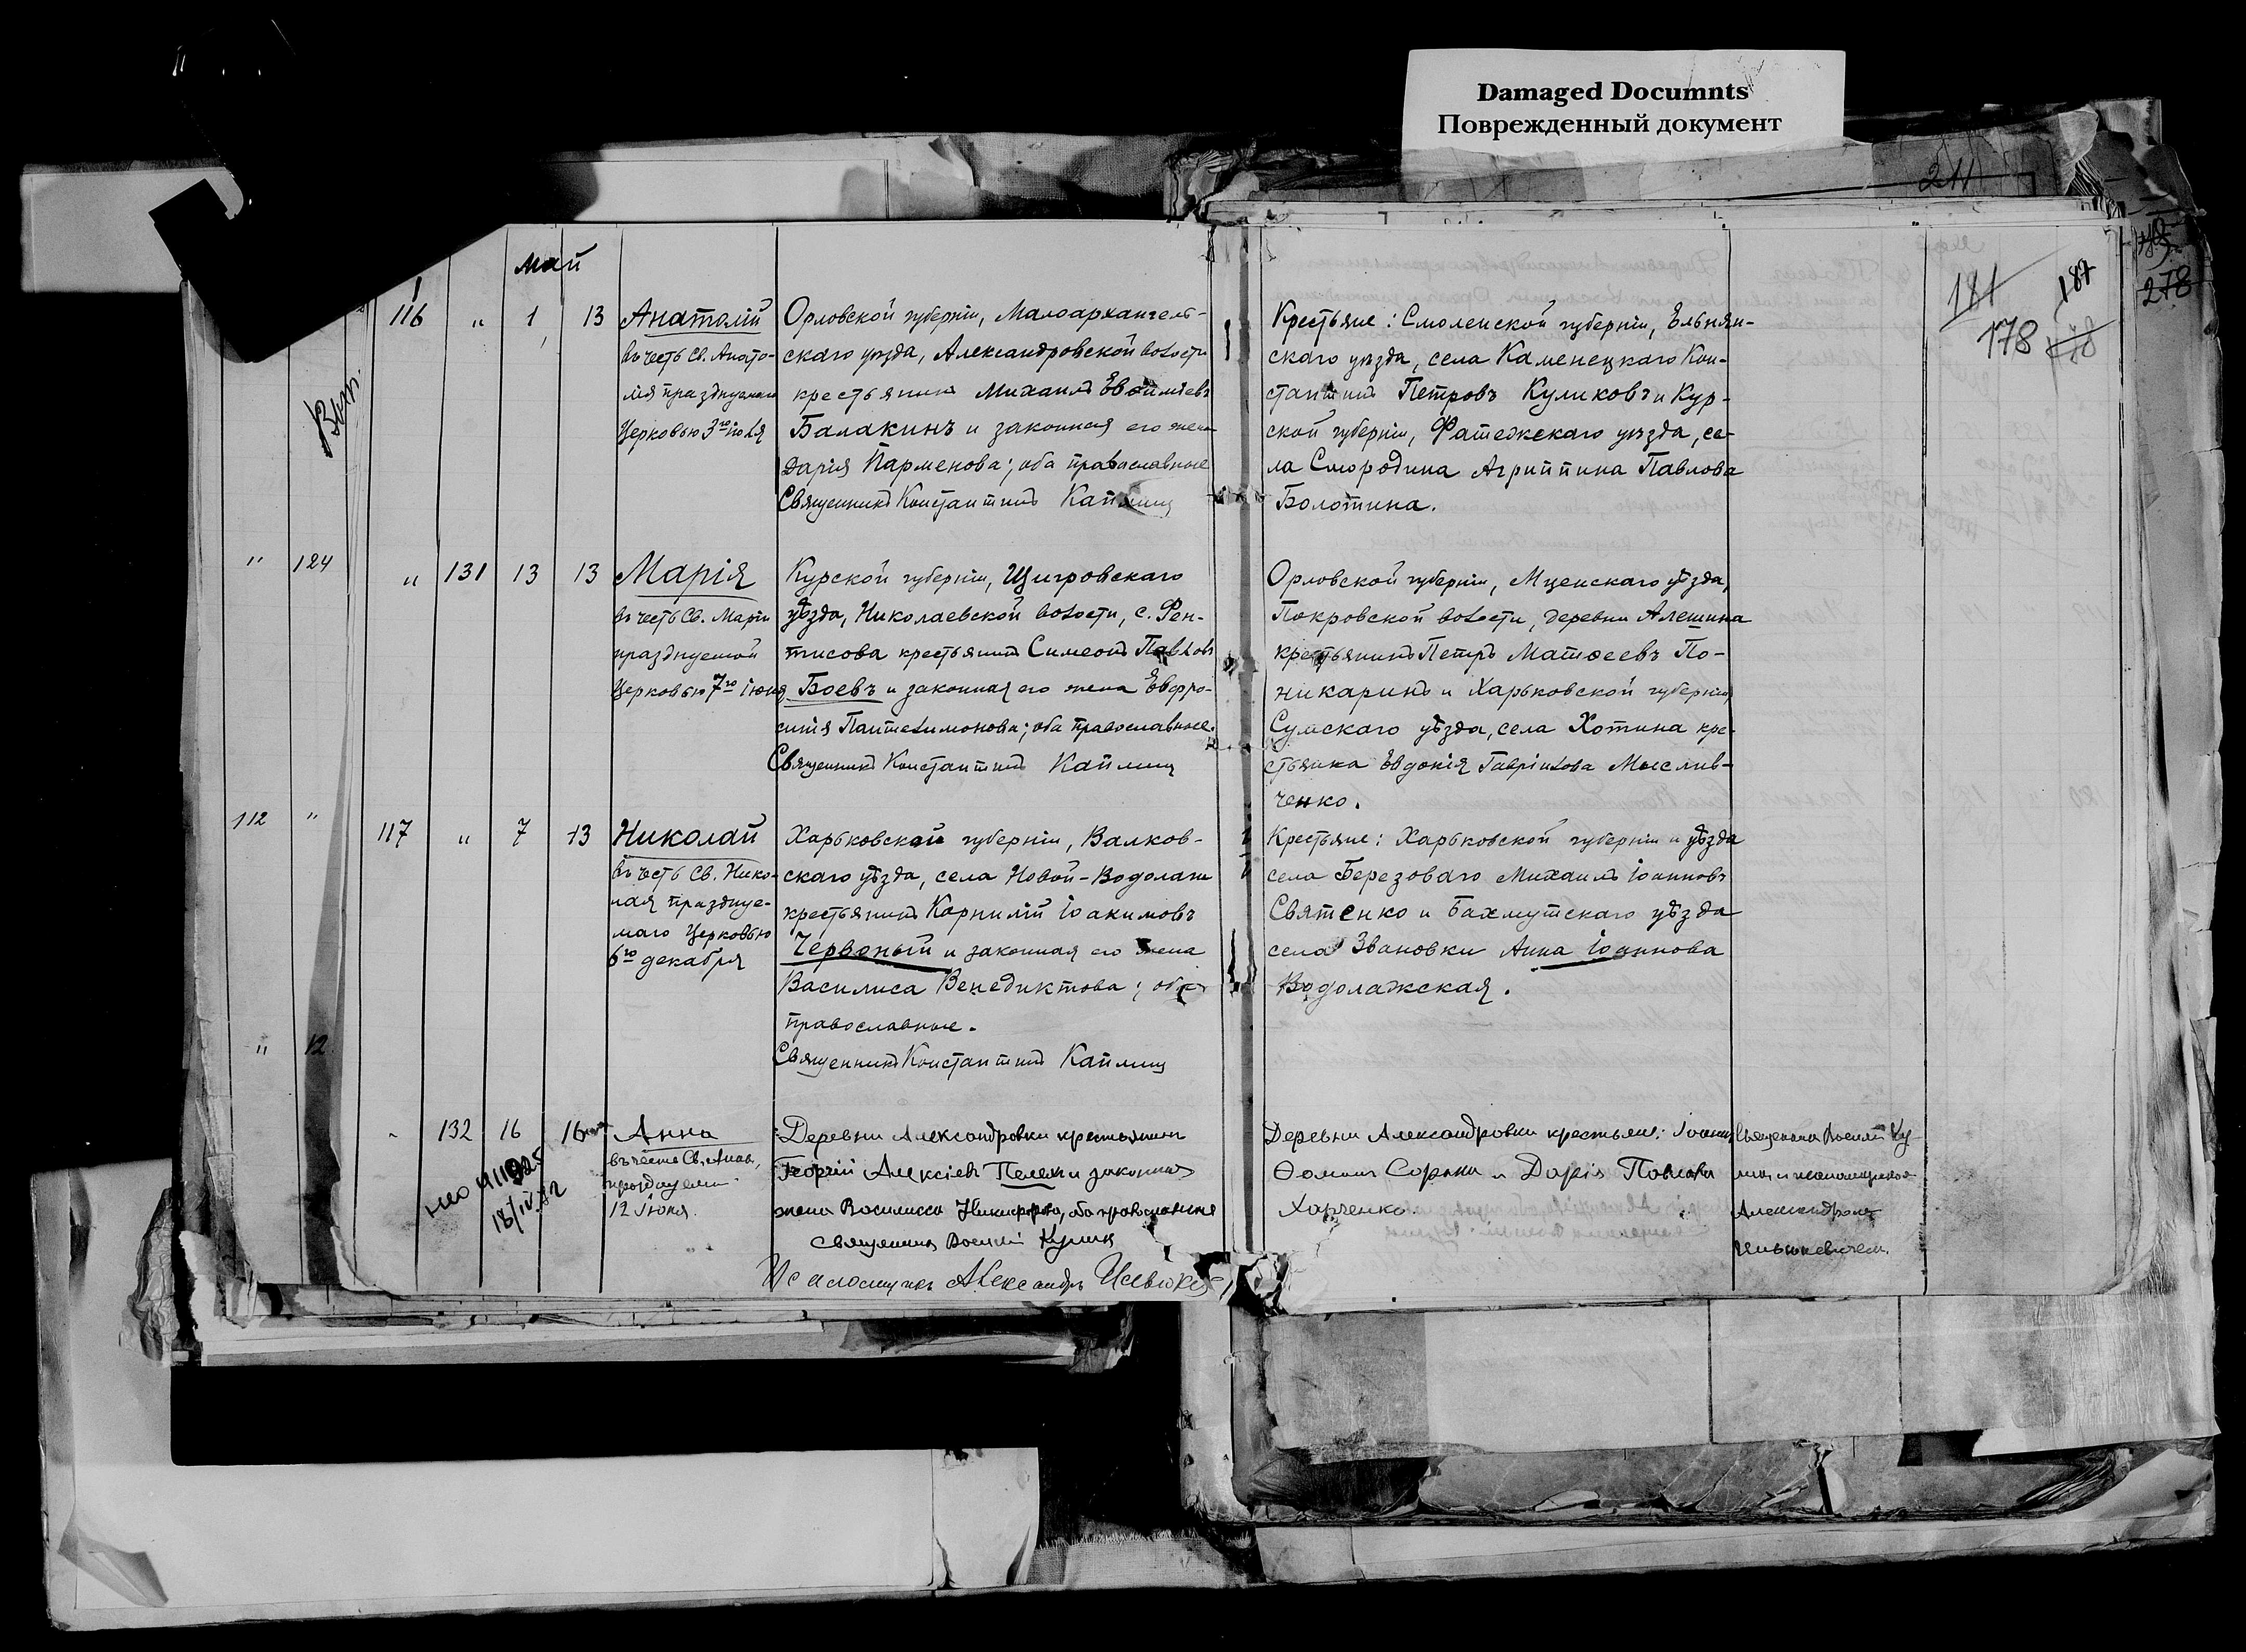 Damaged Documnts
Поврежденный документ
211
181
187
178
278
май
116 " 1 13
Анатолій
въ честь Св. Анато-
лія празднуемаго
Церковью 3го іюля
Орловской губерніи, Малоархангель-
скаго уѣзда, Александровской волости
крестьянинъ Михаилъ Евѳиміевъ
Балакинъ и законная его жена
Дарія Парменова; оба православные
Священникъ Константинъ
Крестьяне: Смоленской губерніи, Ельнин-
скаго уѣзда, села Каменецкаго Кон-
стантинъ Петровъ Куликовъ и Кур-
ской губерніи, Фатежскаго уѣзда, се-
ла Смородина Агриппина Павлова
Болотина.
" 124
" 131 13 13
Марія
въ честь Св. Маріи
празднуемой
Церковью 7го іюня
Курской губерніи, Щигровскаго
уѣзда, Николаевской волости, с. Рен-
тисова крестьянинъ Симеонъ Павловъ
Боевъ и законная его жена Евфро-
синія Пантелимонова; оба православные.
Священникъ Константинъ Каплинъ
Орловской губерніи, Мценскаго уѣзда,
Покровской волости, деревни Алешина
крестьянинъ Петръ Матѳеевъ По-
никаринъ и Харьковской губерніи,
Сумскаго уѣзда, села Хотина кре-
стьянка Евдокія Гавріилова Мыслив-
ченко.
112 "
117 " 7 13
Николай
въ честь Св. Нико-
лая празднуе-
маго Церковью
6го декабря
Харьковской губерніи, Валков-
скаго уѣзда, села Новой-Водолаги
крестьянинъ Корнилій Іоакимовъ
Червоный и законная его жена
Василиса Венедиктова; оба
православные.
Священникъ Константинъ Каплинъ
Крестьяне: Харьковской губерніи и уѣзда
села Березоваго Михаилъ Іоанновъ
Святенко и Бахмутскаго уѣзда
села Звановки Анна Іоаннова
Водолажская.
" 12
132 16 16
Анна
въ честь Св. Анны,
12 Іюня.
Деревни Александровки крестьянинъ
Георгій Алексіевъ и законная
жена Василисса Никифорова, оба православные
Священникъ Василій
Псаломщикъ Александръ
Деревни Александровки крестьяне: Іоаннъ
Ѳоминъ и Дарія Павлова
Харченко
Священникъ Василій Ку-
Александромъ
18/IV.82